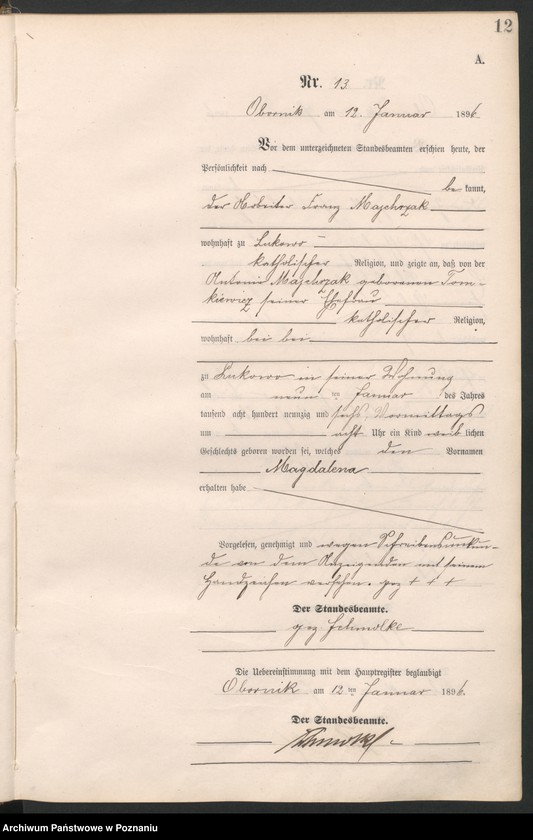 12
A.
Nr. 13
Obornik am 12. Januar 1896.
Vor dem unterzeichneten Standesbeamten erschien heute, der
Persönlichkeit nach
be kannt,
der Arbeiter Franz Majchrzak
wohnhaft zu Lukowo
katholischer Religion, und zeigte an, daß von der
Antonie Majchrzak geborenen Tom-
kiewicz seiner Ehefrau
katholischer Religion,
wohnhaft bei
zu Lukowo in seiner Wohnung
am neun ten Januar des Jahres
tausend acht hundert neunzig und sechs Vormittags
um acht Uhr ein Kind weib lichen
Geschlechts geboren worden sei, welches den Vornamen
Magdalena
erhalten habe
Vorgelesen, genehmigt und wegen Schreibensunkun-
de von dem Anzeigenden mit seinem
Handzeichen versehen. gez + + +
Der Standesbeamte.
gez Schmolke
Die Uebereinstimmung mit dem Hauptregister beglaubigt
Obornik am 12 ten Januar 1896.
Der Standesbeamte.
Schmolke
Archiwum Państwowe w Poznaniu